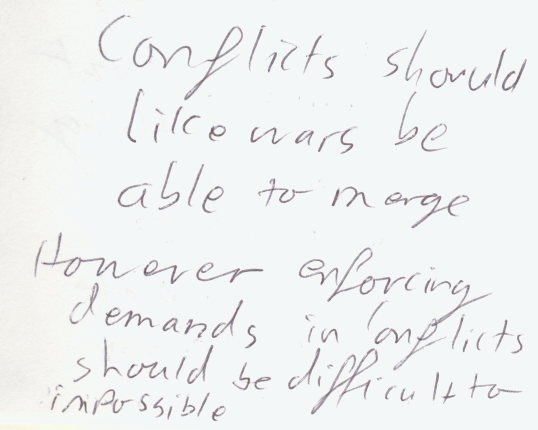 Conflicts should
like wars be
able to merge
However enforcing
demands in conflicts
should be difficult to
impossible